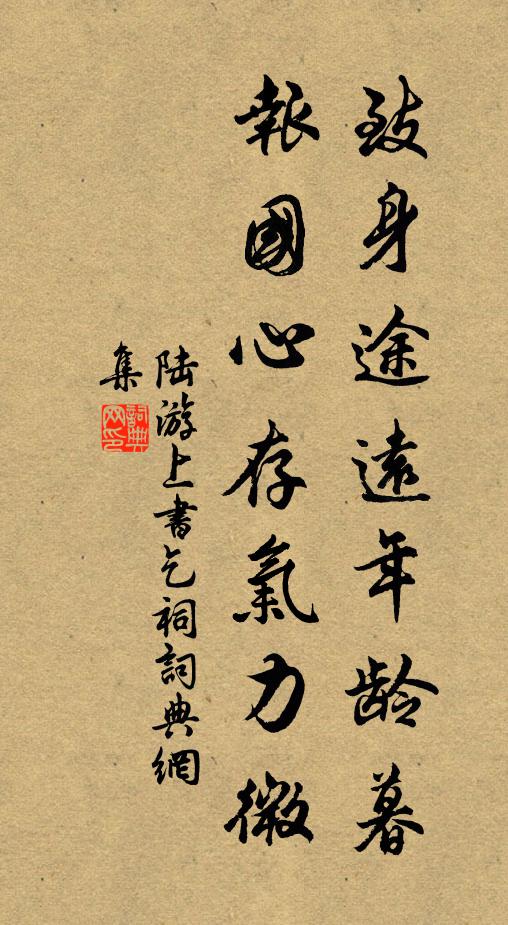 致身途遠年齡暮
報國心存氣力微
陆游上書乞祠詞典網
集
詞典网印